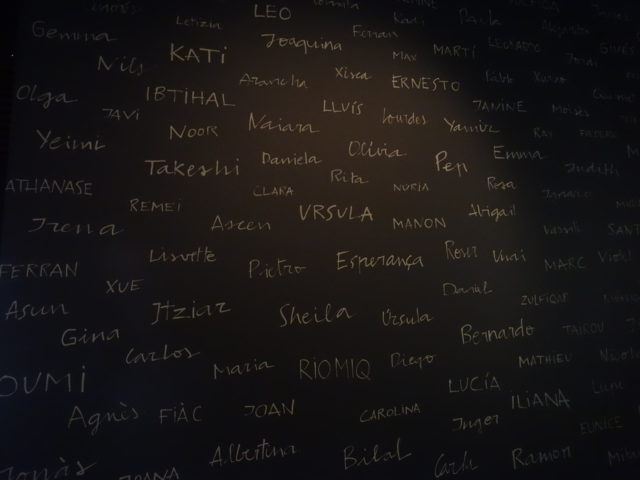 Letizia LEO Paula
Gemma KATI Joaquina Ferran MAX MARTÍ LEONARDO
Nils Arancha Xisca ERNESTO Pablo
Olga JAVI IBTIHAL LLVÍS Lourdes JANINE Moisés
Yeimi NOOR Naiara Yamir RAY
Takeshi Daniela Olivia Pep Emma Judith
ATHANASE CLARA Rita NURIA Rosa
REMEI VRSULA MANON Abigail
Irena Ascen Vassili
FERRAN Lisvette Pietro Esperança Roser Unai MARC
XUE David
Asun Itziar Sheila Úrsula ZULFIQAR
Gina Carlos Bernardo TAIROU
OUMI Maria RIOMIQ Diego MATHIEU
LUCÍA ILIANA
Agnès FIÀC JOAN CAROLINA Inger EUNICE
Albertina Bilal Carla Ramon
JOANA